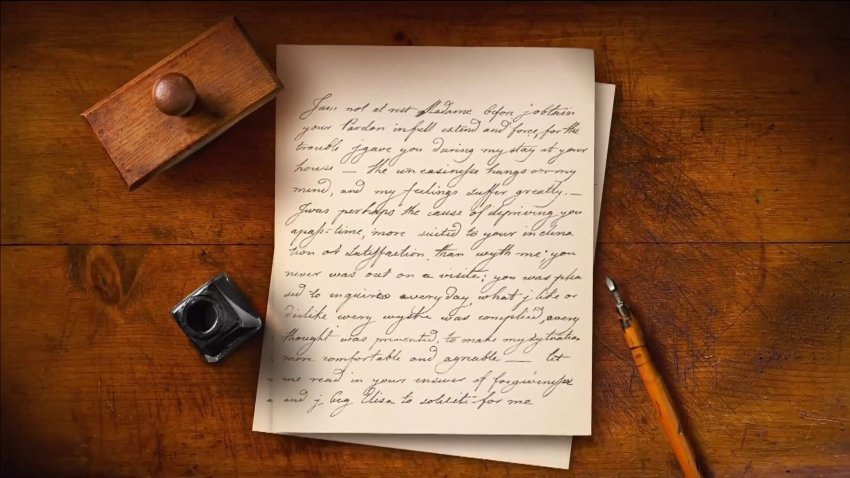 J am not at rest Madame before j obtain
your Pardon in full extend and force, for the
trouble j gave you during my stay at your
house — the uneasinesse hangs on my
mind, and my feelings suffer greatly. —
J was perhaps the cause of depriving you
a pass-time, more suited to your inclina
tion and Satisfaction, than wyth me, you
never was out on a visite; you was plea
sed to enquire every day, what j like or
dislike every wyshe was complied, every
thought was prevented, to make my sytuation
more comfortable and agreable — let
me read in your answer of forgiveness
and j beg Elisa to solicite for me